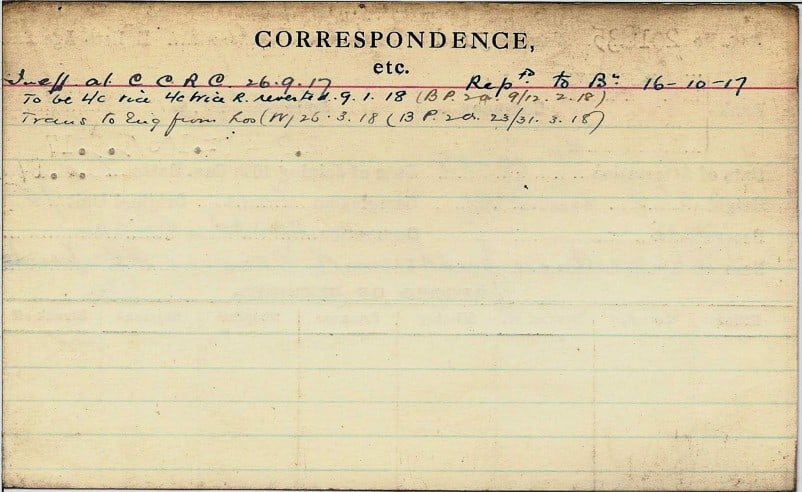 CORRESPONDENCE,
etc.
Ineff at C C R C. 26.9.17 Rep^td to B^n 16-10-17
To be L/c vice L/c Price R. reverted. 9. 1. 18 (B P. 2a. 9/12. 2. 18)
Trans to Eng from (W) 26. 3. 18 (B P. 2a. 23/31. 3. 18)